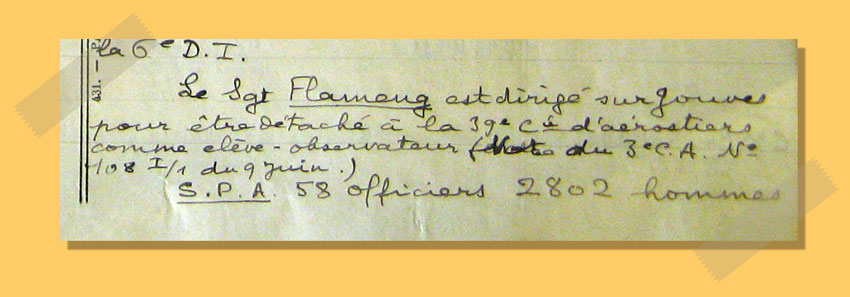 la 6e D. I.
Le Sgt Flameng est dirigé sur Gouves
pour être détaché à la 39e Cie d'aérostiers
comme elève-observateur (Note du 3e C.A. No
108 I/1 du 9 juin.)
S.P.A. 58 officiers 2802 hommes